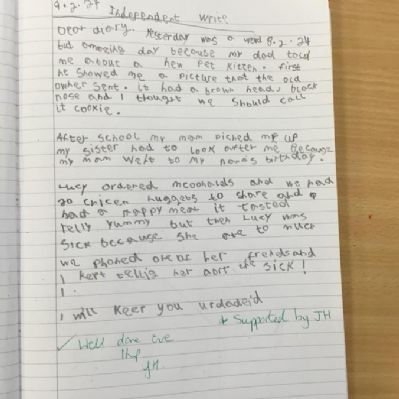 9.2.24 Independent write
Dear diary. Yesterday was a weird 8.2.24
but amazing day because my dad told
me about a new pet kitten. First
he showed me a picture that the old
owner sent. it had a brown head, black
nose and I thought we should call
it cookie.
After school my mom picked me up
my sister had to look after me because
my mam went to my nona's birthday.
Lucy ordered mcdonalds and we had
20 chicen nuggets to share and
had a happy meal it tasted
relly yummy but then Lucy was
sick because she ate to much
we phoned one of her freinds and
I kept tellig her abrt the sick!
I.
I will keep you urdadeid
+ Supported by JH
✓ Well done
1hp
JH